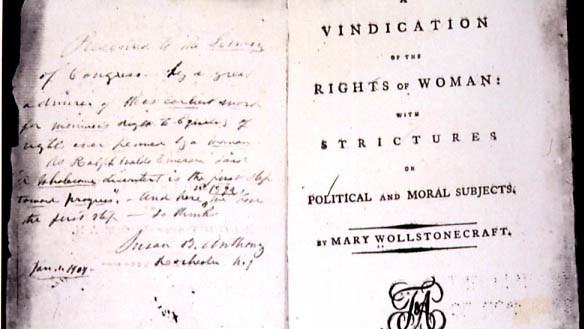 Presented to the Library
of Congress by a great
admirer of this earliest word
for woman's right to Equality of
rights ever penned by a woman
As Ralph Waldo Emerson said
"A wholesome discontent is the first step
toward progress". - And here in 1792 we have
the first step - so thinks
Susan B. Anthony
Rochester N.Y
Jan. 1. 1904 -
A
VINDICATION
OF THE
RIGHTS OF WOMAN:
WITH
STRICTURES
ON
POLITICAL AND MORAL SUBJECTS.
BY MARY WOLLSTONECRAFT.